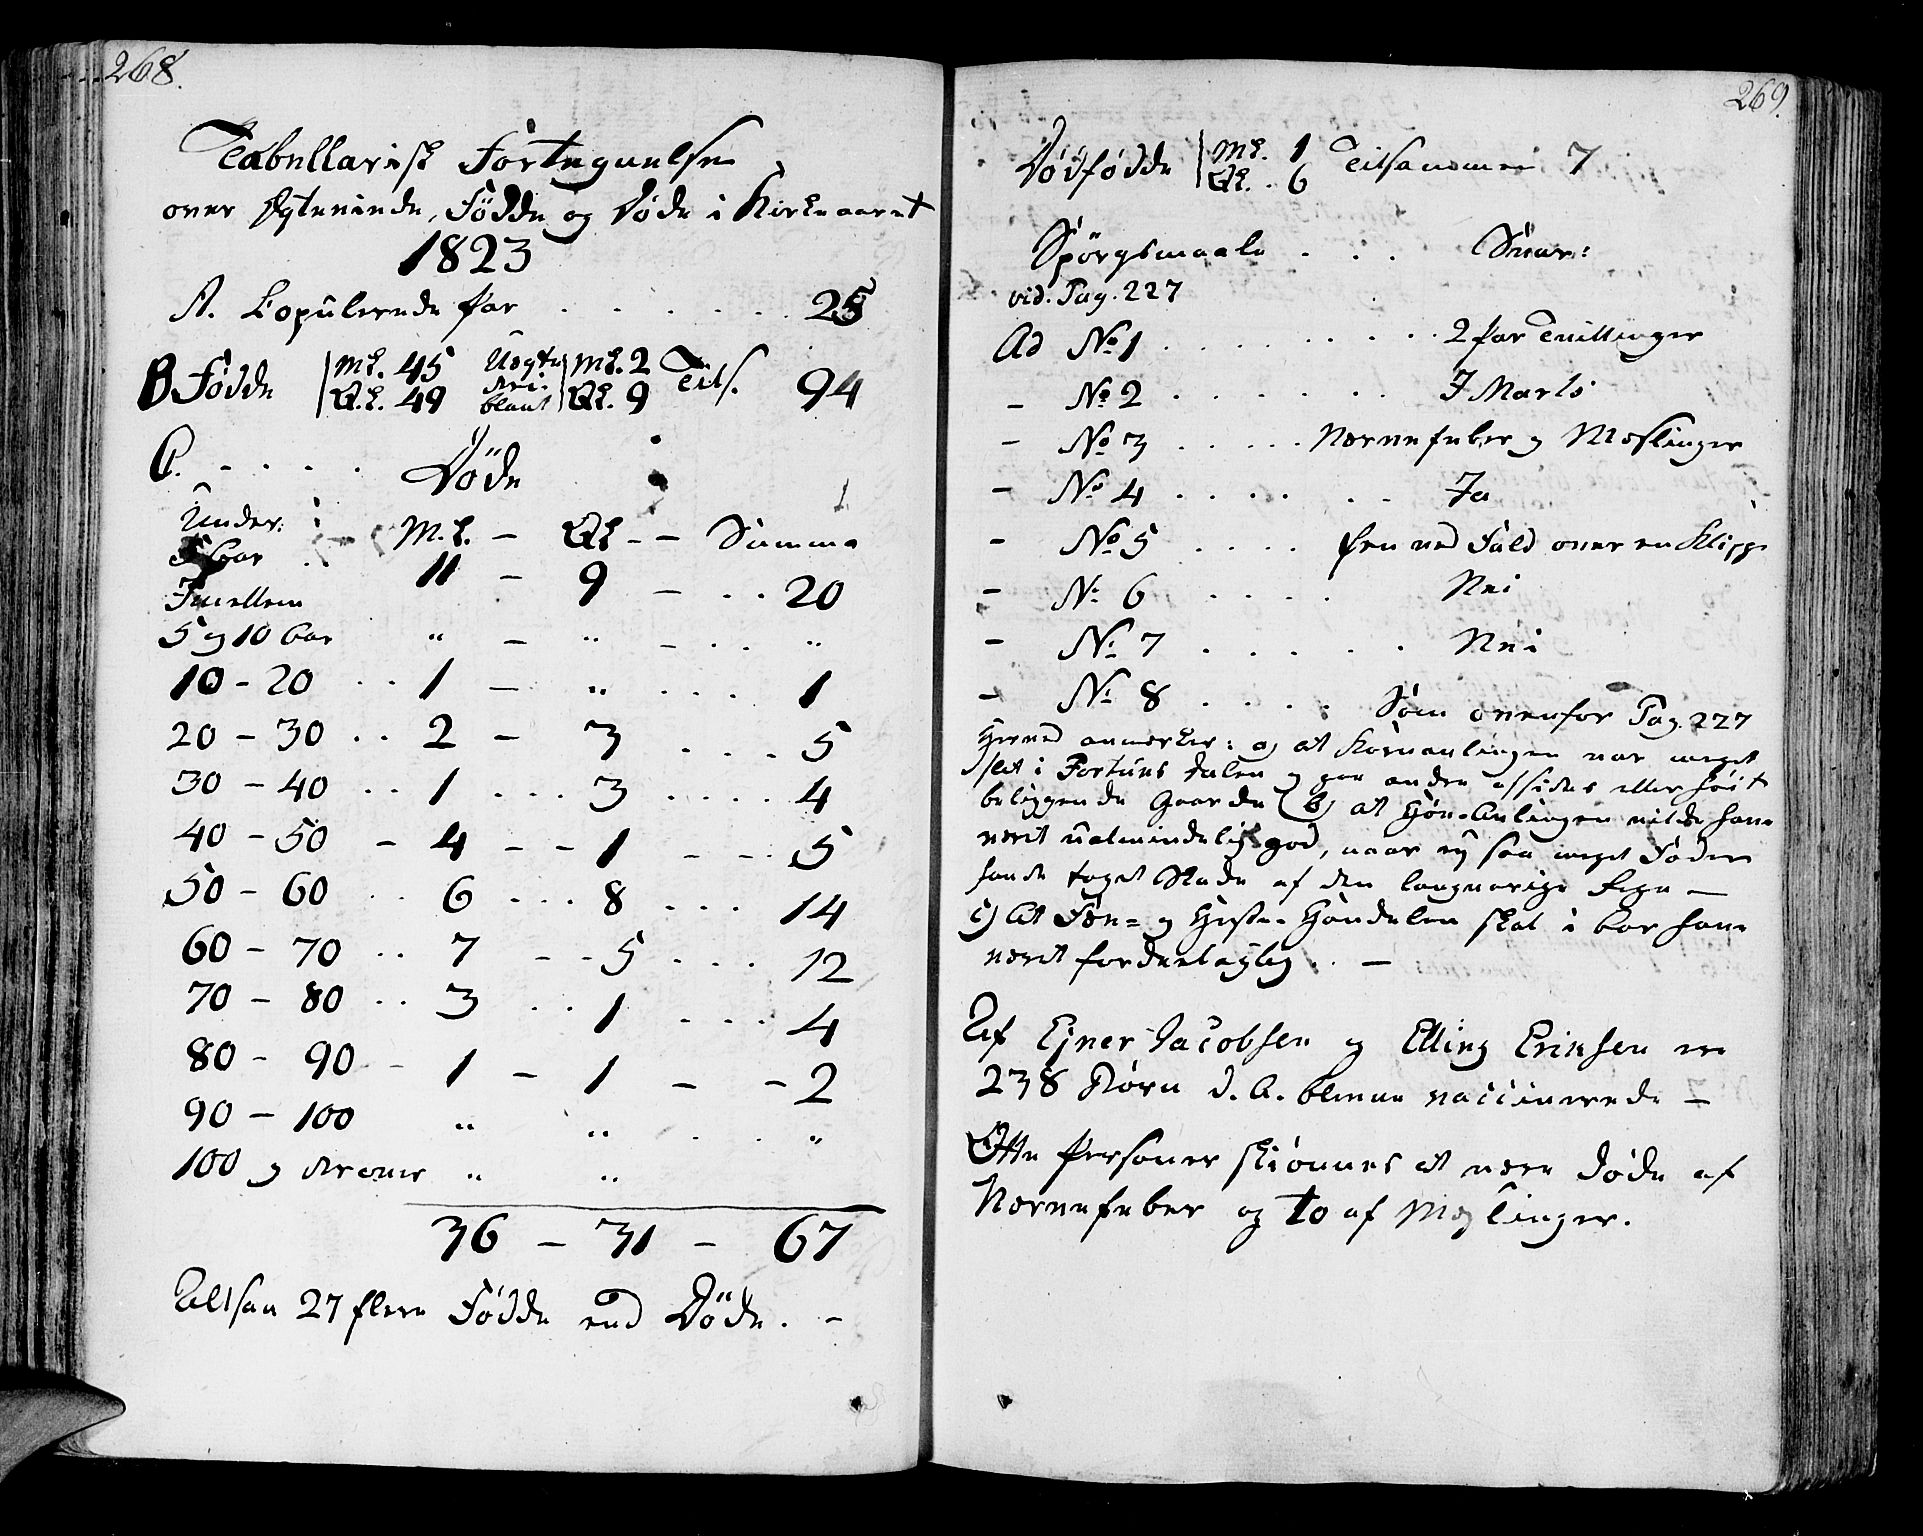 268.
Tabellarisk Fortegnelse
over Egteviede, Födde og Døde i Kirkeaaret
1823
A. Copulerede Par . . . . . . 25
B Födde Mk. 45 Uegte Mk. 2 Tils. 94
Qk. 49 blant Qk. 9
C. . . . . Döde
Under M.k. – Qk – – Summa
5 Aar 11 – 9 – . . 20
Imellem
5 og 10 Aar " – " – . . "
10 – 20 . . 1 – " . . . 1
20 – 30 . . 2 – 3 . . . 5
30 – 40 . . 1 . . . 3 . . . . 4
40 – 50 – 4 – – 1 – – . . 5
50 – 60 . . 6 . . . 8 . . . 14
60 – 70 . . 7 – – 5 . . . 12
70 – 80 . . 3 . . 1 . . . . 4
80 – 90 – 1 – 1 – – 2
90 – 100 " " . . "
100 og derover " "
36 – 31 – 67
Altsaa 27 flere Födde end Döde. –
269.
Dödfödde Mk. 1 Tilsammen 7
Qk. . 6
Spörgsmaale . . . Svar:
vid. Pag. 227
Ad No 1 . . . . . . . . . 2 Par Tvillinger
– No 2 . . . . . . I Marts
– No 3 . . . . . Nervefeber og Meslinger
– No 4 . . . . . . Ja
– No 5 . . . . Een ved Fald over en Klippe
– N: 6 . . . . Nei
– N: 7 . . . . . Nei
– N: 8 . . . . Som ovenfor Pag. 227
Herved anmerkes: a) at Kornavlingen var meget
slet i Fortuns Dalen og paa andre afsides eller höit
beliggende Gaarde (b) at Höe-Avlingen vilde have
verit ualmindelig god, naar ej saa meget Foder
havde taget Skade af den langvarige Regn –
c) At Fæe- og Heste-Handelen skal i Aar have
verit fordeelagtig . –
Af Ejner Jacobsen og Elling Eriksen ere
238 Börn d. A. blevne vaccinerede –
Otte Personer skiönnes at være döde af
Nervefeber og to af Meslinger.